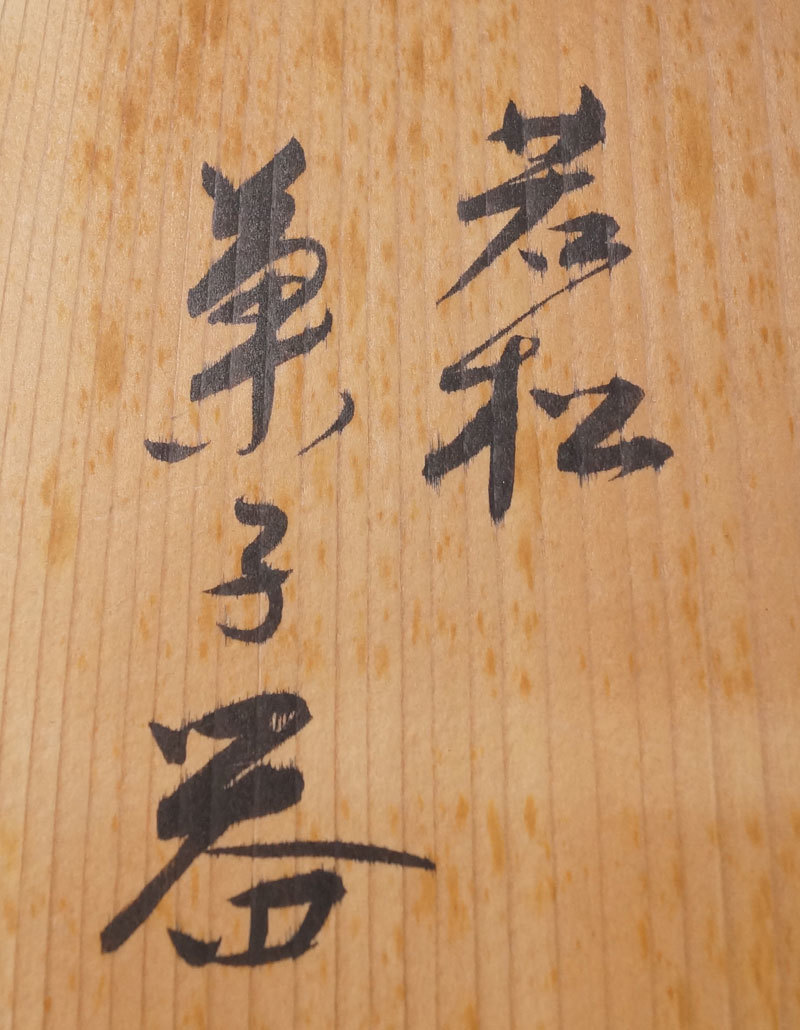 若松
菓子器